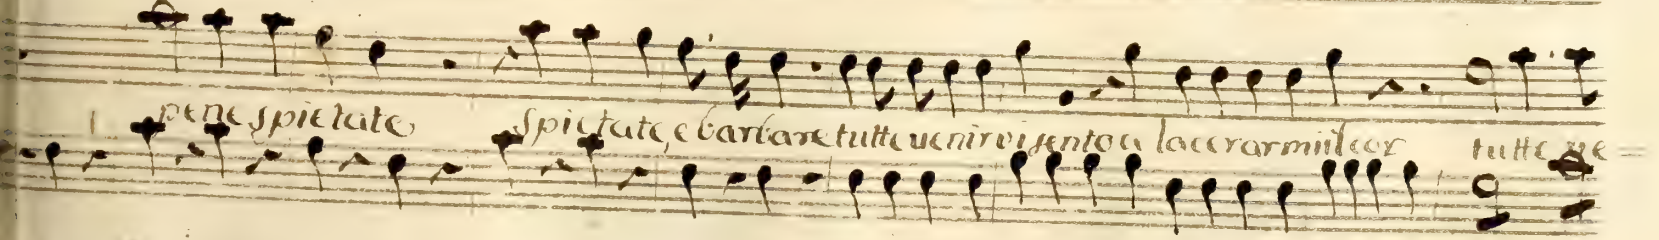 pene spietate spietate, e barbare tutte venir vi sento a lacerarmi il cor tutte ve=